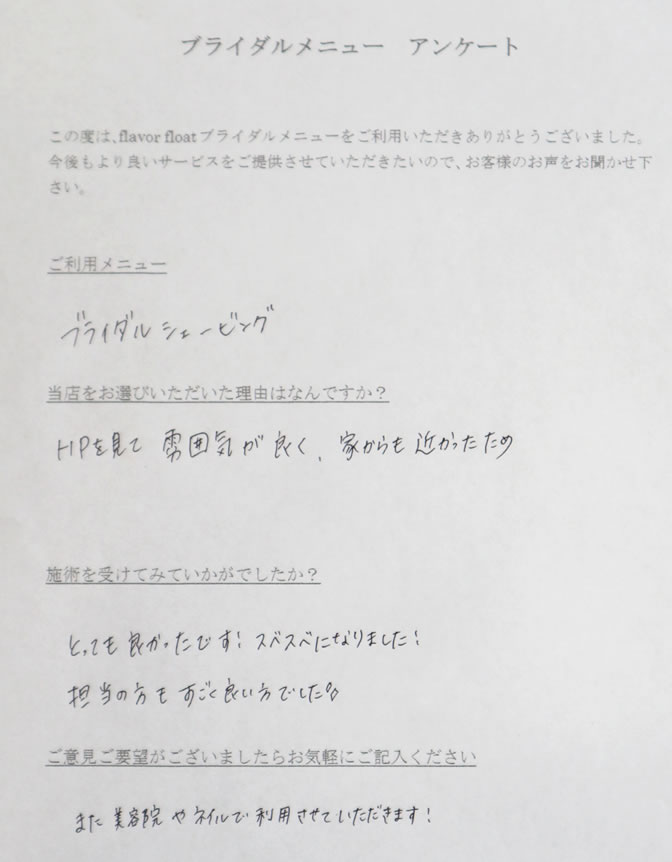 ブライダルメニュー　アンケート
この度は、flavor floatブライダルメニューをご利用いただきありがとうございました。
今後もより良いサービスをご提供させていただきたいので、お客様のお声をお聞かせ下
さい。
ご利用メニュー
ブライダルシェービング
当店をお選びいただいた理由はなんですか？
HPを見て 雰囲気が良く、家からも近かったため
施術を受けてみていかがでしたか？
とっても良かったです！スベスベになりました！
担当の方もすごく良い方でした
ご意見ご要望がございましたらお気軽にご記入ください
また美容院やネイルで利用させていただきます！